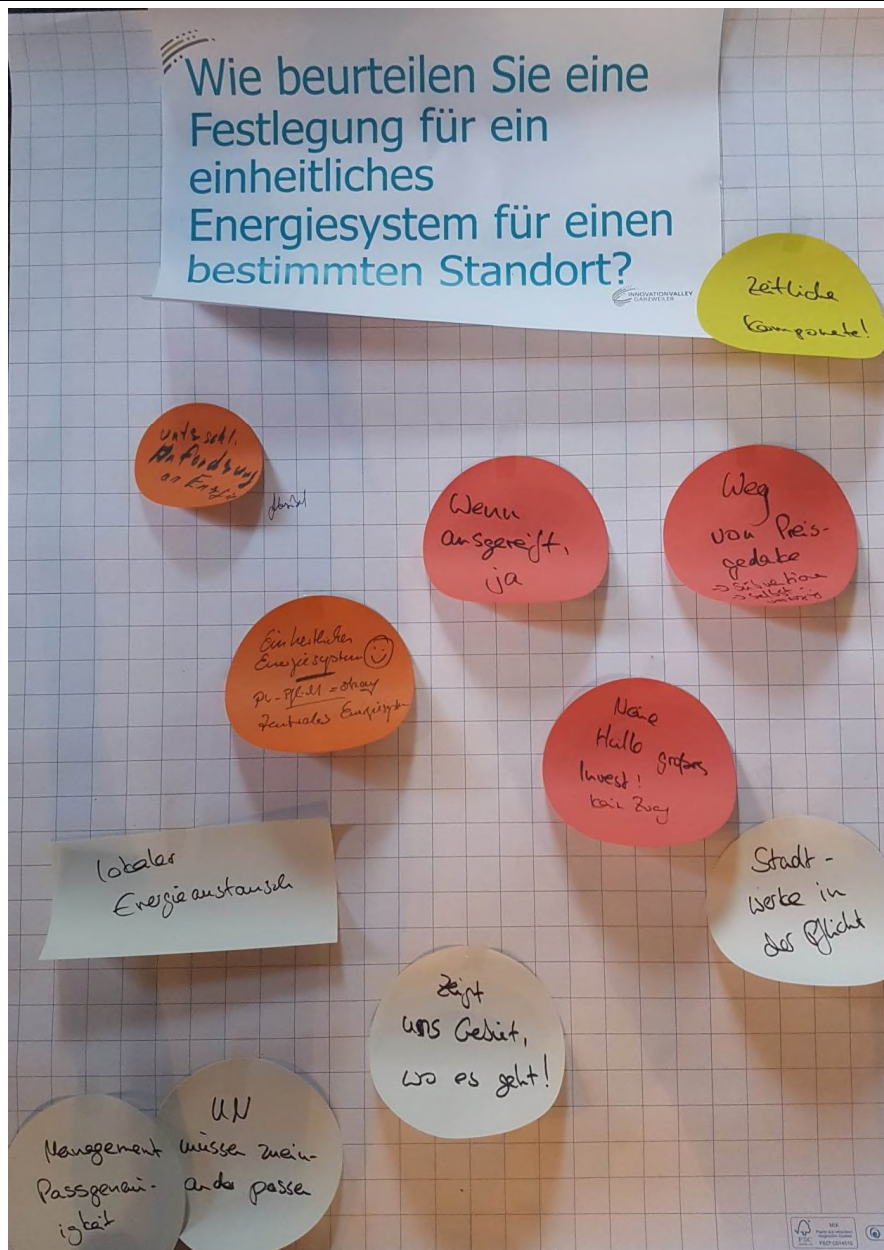 Wie beurteilen Sie eine
Festlegung für ein
einheitliches
Energiesystem für einen
bestimmten Standort?
INNOVATIONVALLEY
GARZWEILER
Zeitliche
Komponete!
unterschl.
Anforderung
an
Wenn
ausgereift,
ja
Weg
von Preis-
gedake
Einheitliches
Energiesystem
PV-Pflicht =
zentrales Energiesystem
Neue
Halle großes
Invest!
kein Zwang
lokaler
Energieaustausch
Stadt-
werke in
der Pflicht
Zeigt
uns Gebiet,
wo es geht!
UN
müssen zuein-
ander passen
Management
Passgenau-
igkeit
FSC
MIX